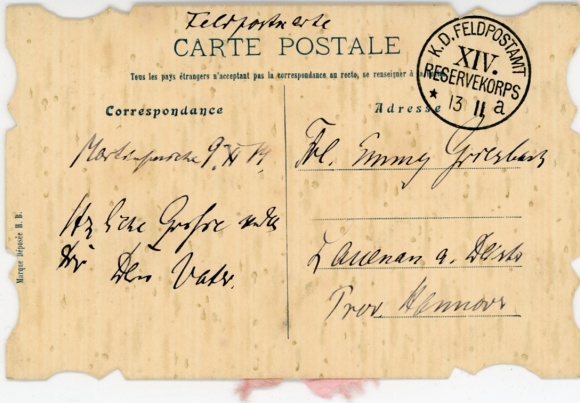 Feldpostkarte
CARTE POSTALE
Tous les pays étrangers n'acceptant pas la correspondance au recto, se renseigner à la
Correspondance
Adresse
K.D. FELDPOSTAMT
XIV.
RESERVEKORPS
* 13 11 a
9. XI 14
Frl. Emmy
Grüße
Dir Dein Vater
Lauenau a. Deister
Prov. Hannover
Marque Déposée H. B.